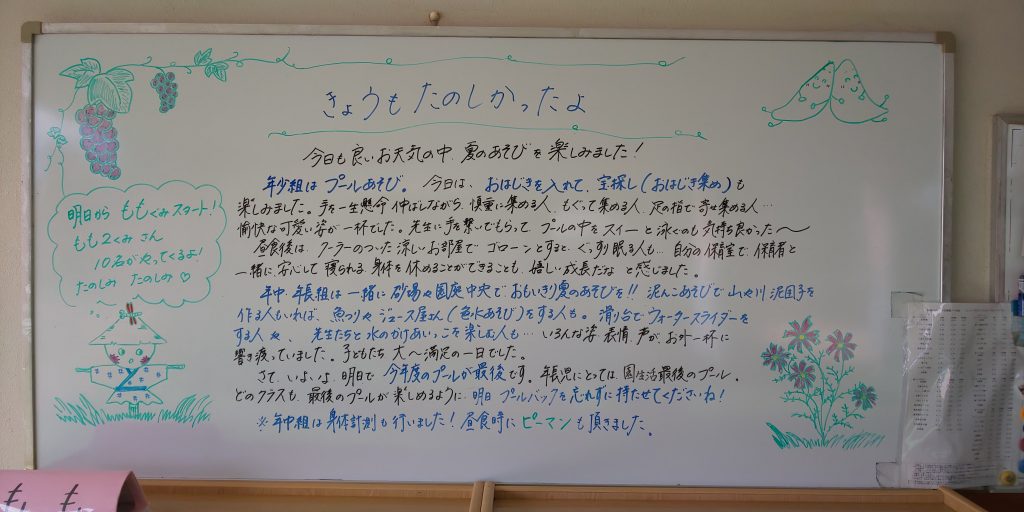 きょうも たのしかったよ
今日も良いお天気の中、夏のあそびを楽しみました!
年少組は プールあそび。 今日は、おはじきを入れて、宝探し(おはじき集め)も
楽しみました。手を一生懸命 伸ばしながら、慎重に集める人、もぐって集める人、足の指で寄せ集める人…
愉快な可愛い姿が一杯でした。先生に手を繋いでもらって プールの中をスイーと泳ぐのも気持ち良かった〜
昼食後は、クーラーのついた涼しいお部屋で ゴローンとすると、ぐっすり眠る人も。自分の保育室で、保育者と
一緒に、安心して 寝られる、身体を休めることができることも、嬉しい成長だな と感じました。
年中・年長組は一緒に 砂場や園庭中央で おもいきり夏のあそびを!! 泥んこあそびで 山や川 泥団子を
作る人もいれば、魚つりや ジュース屋さん(色水あそび)をする人も。滑り台で ウォータースライダーを
する人や、先生たちと 水のかけあいっこを楽しむ人も… いろんな姿 表情、声が、お外一杯に
響き渡っていました。子どもたち 大〜満足の一日でした。
さて、いよいよ 明日で 今年度のプールが最後です。年長児にとっては、園生活最後のプール。
どのクラスも、最後のプールが 楽しめるように、明日 プールバックを忘れずに持たせてくださいね!
※年中組は身体計測も行いました! 昼食時に ピーマンも頂きました。
明日から ももぐみスタート!
もも2くみ さん
10名が やってくるよ!
たのしみ たのしみ♡